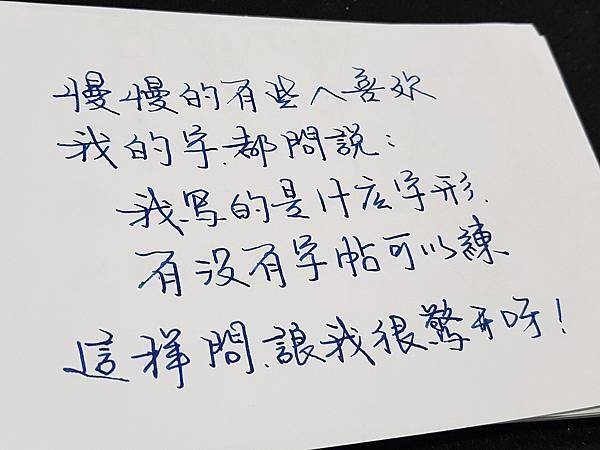 慢慢的有些人喜欢
我的字.都問說：
我写的是什庅字形.
有沒有字帖可以練
這样問.讓我很驚讶呀！